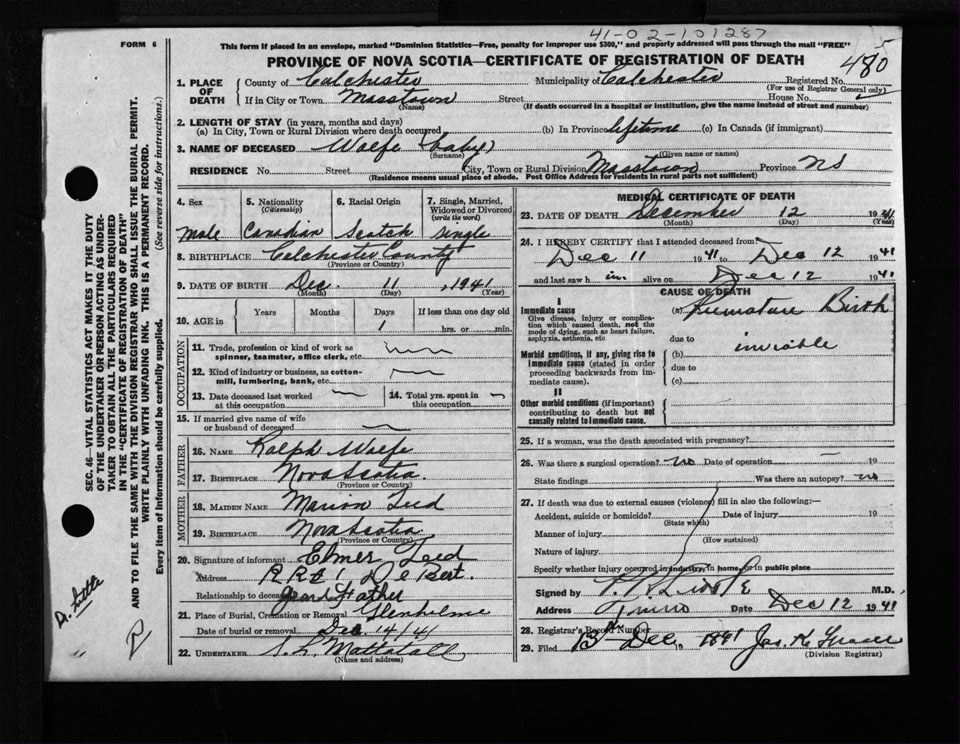 41-02-101287
FORM 6
This form if placed in an envelope, marked "Dominion Statistics—Free, penalty for improper use $300," and properly addressed will pass through the mail "FREE"
5
480
PROVINCE OF NOVA SCOTIA—CERTIFICATE OF REGISTRATION OF DEATH
1. PLACE OF DEATH County of Colchester Municipality of Colchester Registered No.
(For use of Registrar General only)
If in City or Town Masstown Street House No.
(Name) (If death occurred in a hospital or institution, give the name instead of street and number)
2. LENGTH OF STAY (in years, months and days)
(a) In City, Town or Rural Division where death occurred (b) In Province lifetime (c) In Canada (if immigrant)
3. NAME OF DECEASED Wolfe (baby)
(Surname) (Given name or names)
RESIDENCE No. Street City, Town or Rural Division Masstown Province NS
(Residence means usual place of abode. Post Office Address for residents in rural parts not sufficient)
4. Sex 5. Nationality (Citizenship) 6. Racial Origin 7. Single, Married, Widowed or Divorced (write the word)
Male Canadian Scotch Single
8. BIRTHPLACE Colchester County
(Province or County)
9. DATE OF BIRTH Dec. 11, 1941
(Month) (Day) (Year)
10. AGE in Years Months Days If less than one day old
1 hrs. or min.
OCCUPATION
11. Trade, profession or kind of work as spinner, teamster, office clerk, etc.
12. Kind of industry or business, as cotton-mill, lumbering, bank, etc.
13. Date deceased last worked at this occupation 14. Total yrs. spent in this occupation
15. If married give name of wife or husband of deceased
FATHER
16. NAME Ralph Wolfe
17. BIRTHPLACE Nova Scotia
(Province or Country)
MOTHER
18. MAIDEN NAME Marion Teed
19. BIRTHPLACE Nova Scotia
(Province or Country)
20. Signature of informant Elmer Teed
Address R R # 1 DeBert.
Relationship to deceased Grand Father
21. Place of Burial, Cremation or Removal Glenholme
Date of burial or removal Dec 14/41
22. UNDERTAKER S. L. Mattatall
(Name and address)
MEDICAL CERTIFICATE OF DEATH
23. DATE OF DEATH December 12 1941
(Month) (Day) (Year)
24. I HEREBY CERTIFY that I attended deceased from:
Dec 11 1941 to Dec 12 1941
and last saw him alive on Dec 12 1941
CAUSE OF DEATH
I
Immediate cause (a) Premature Birth
Give disease, injury or complication which caused death, not the mode of dying, such as heart failure, asphyxia, asthenia, etc
due to inviable
Morbid conditions, if any, giving rise to immediate cause (stated in order proceeding backwards from immediate cause).
(b)
due to
(c)
II
Other morbid conditions (if important) contributing to death but not causally related to immediate cause.
25. If a woman, was the death associated with pregnancy?
26. Was there a surgical operation? no Date of operation 19
State findings Was there an autopsy? no
27. If death was due to external causes (violence) fill in also the following:—
Accident, suicide or homicide? Date of injury 19
(State which)
Manner of injury
(How sustained)
Nature of injury
Specify whether injury occurred in industry, in home, or in public place
Signed by M.D.
Address Truro Date Dec 12 1941
28. Registrar's Record Number
29. Filed 13th Dec, 1941 Jas. K.
(Division Registrar)
SEC. 46—VITAL STATISTICS ACT MAKES IT THE DUTY
OF THE UNDERTAKER OR PERSON ACTING AS UNDER-
TAKER TO OBTAIN ALL THE PARTICULARS REQUIRED
IN THE "CERTIFICATE OF REGISTRATION OF DEATH"
AND TO FILE THE SAME WITH THE DIVISION REGISTRAR WHO SHALL ISSUE THE BURIAL PERMIT.
WRITE PLAINLY WITH UNFADING INK. THIS IS A PERMANENT RECORD.
Every item of information should be carefully supplied. (See reverse side for instructions.)
Dr. Little